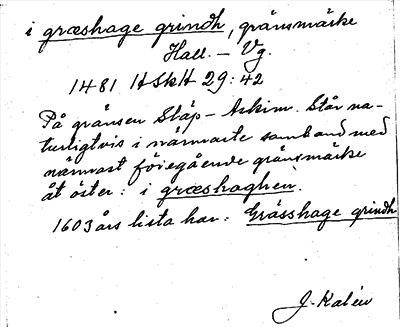 i græshage grindh, gränsmärke
Hall. – Vg.
1481 HSkH 29:42
På gränsen Släp – Askim. Står na-
turligtvis i närmaste samband med
närmast föregående gränsmärke
åt öster: i græshaghen.
1603 års lista har: Grässhage grindh
J. Kalén